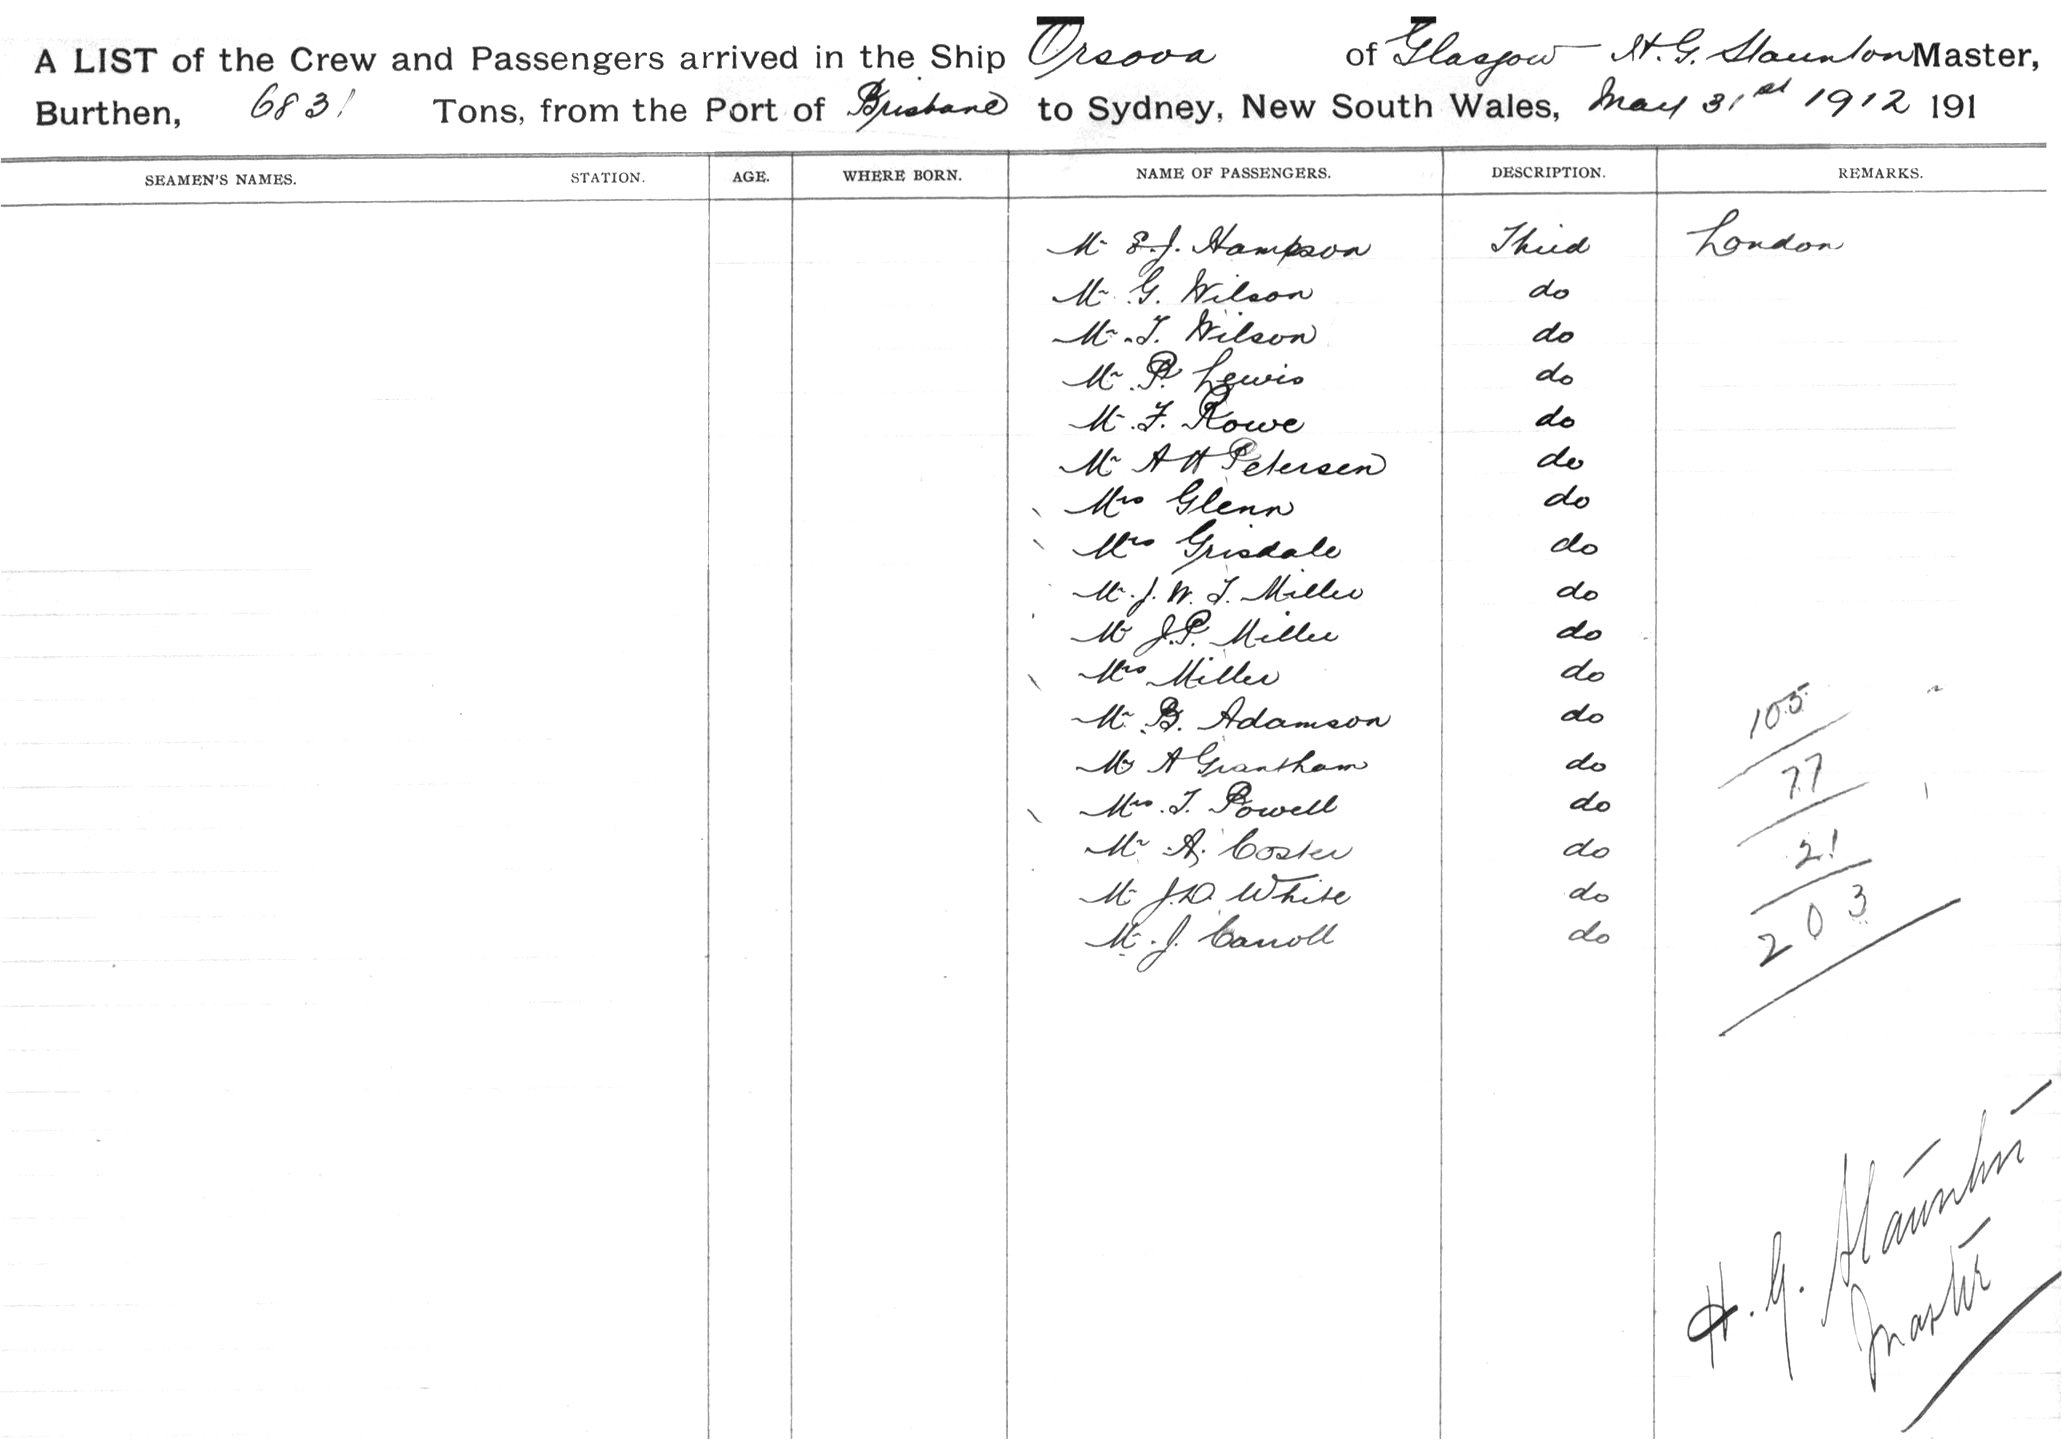 A LIST of the Crew and Passengers arrived in the Ship Orsova of Glasgow H. G. Staunton Master,
Burthen, 6831 Tons, from the Port of Brisbane to Sydney, New South Wales, May 31st 1912 191
SEAMEN'S NAMES. STATION. AGE. WHERE BORN. NAME OF PASSENGERS. DESCRIPTION. REMARKS.
Mr E.J. Hampson Third London
Mr G. Wilson do
Mr T. Wilson do
Mr P. Lewis do
Mr F. Rowe do
Mr A H Petersen do
Mrs Glenn do
Mrs Grisdale do
Mr J. W. T. Miller do
Mr J.P. Miller do
Mrs Miller do
Mr B. Adamson do
Mr A Grantham do
Mrs T. Powell do
Mr A. Coster do
Mr J.D. White do
Mr J. Carroll do
105
77
21
203
H. G. Staunton
Master